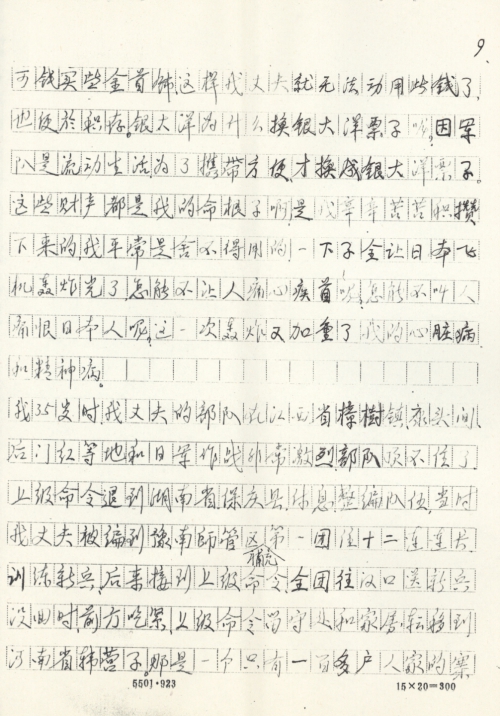 9.
可钱买些金首饰这样我丈夫就无法动用些钱了,
也便於积存。银大洋为什么换银大洋票子呢?因军
队是流动生活为了携带方便才换成银大洋票子。
这些财产都是我的命根子啊,是我辛辛苦苦积攒
下来的,我平常是舍不得用的一下子全让日本飞
机轰炸光了,怎能不让人痛心疾首呢,怎能不叫人
痛恨日本人呢。这一次轰炸又加重了我的心脏病
和精神病。
我35岁时,我丈夫的部队在江西省樟樹镇
等地和日军作战非常激烈部队顶不住了,
上级命令退到湖南省保庆县休息整编队伍,当时
我丈夫被编到豫南師管区补充第一团 十二连连长
训练新兵,后来接到上级命令,全团往汉口送新兵
没回时,前方吃紧,上级命令留守处和家属转移到
河南省韩营子。那是一个只有一百多户人家的寨
5501·923 15×20=300